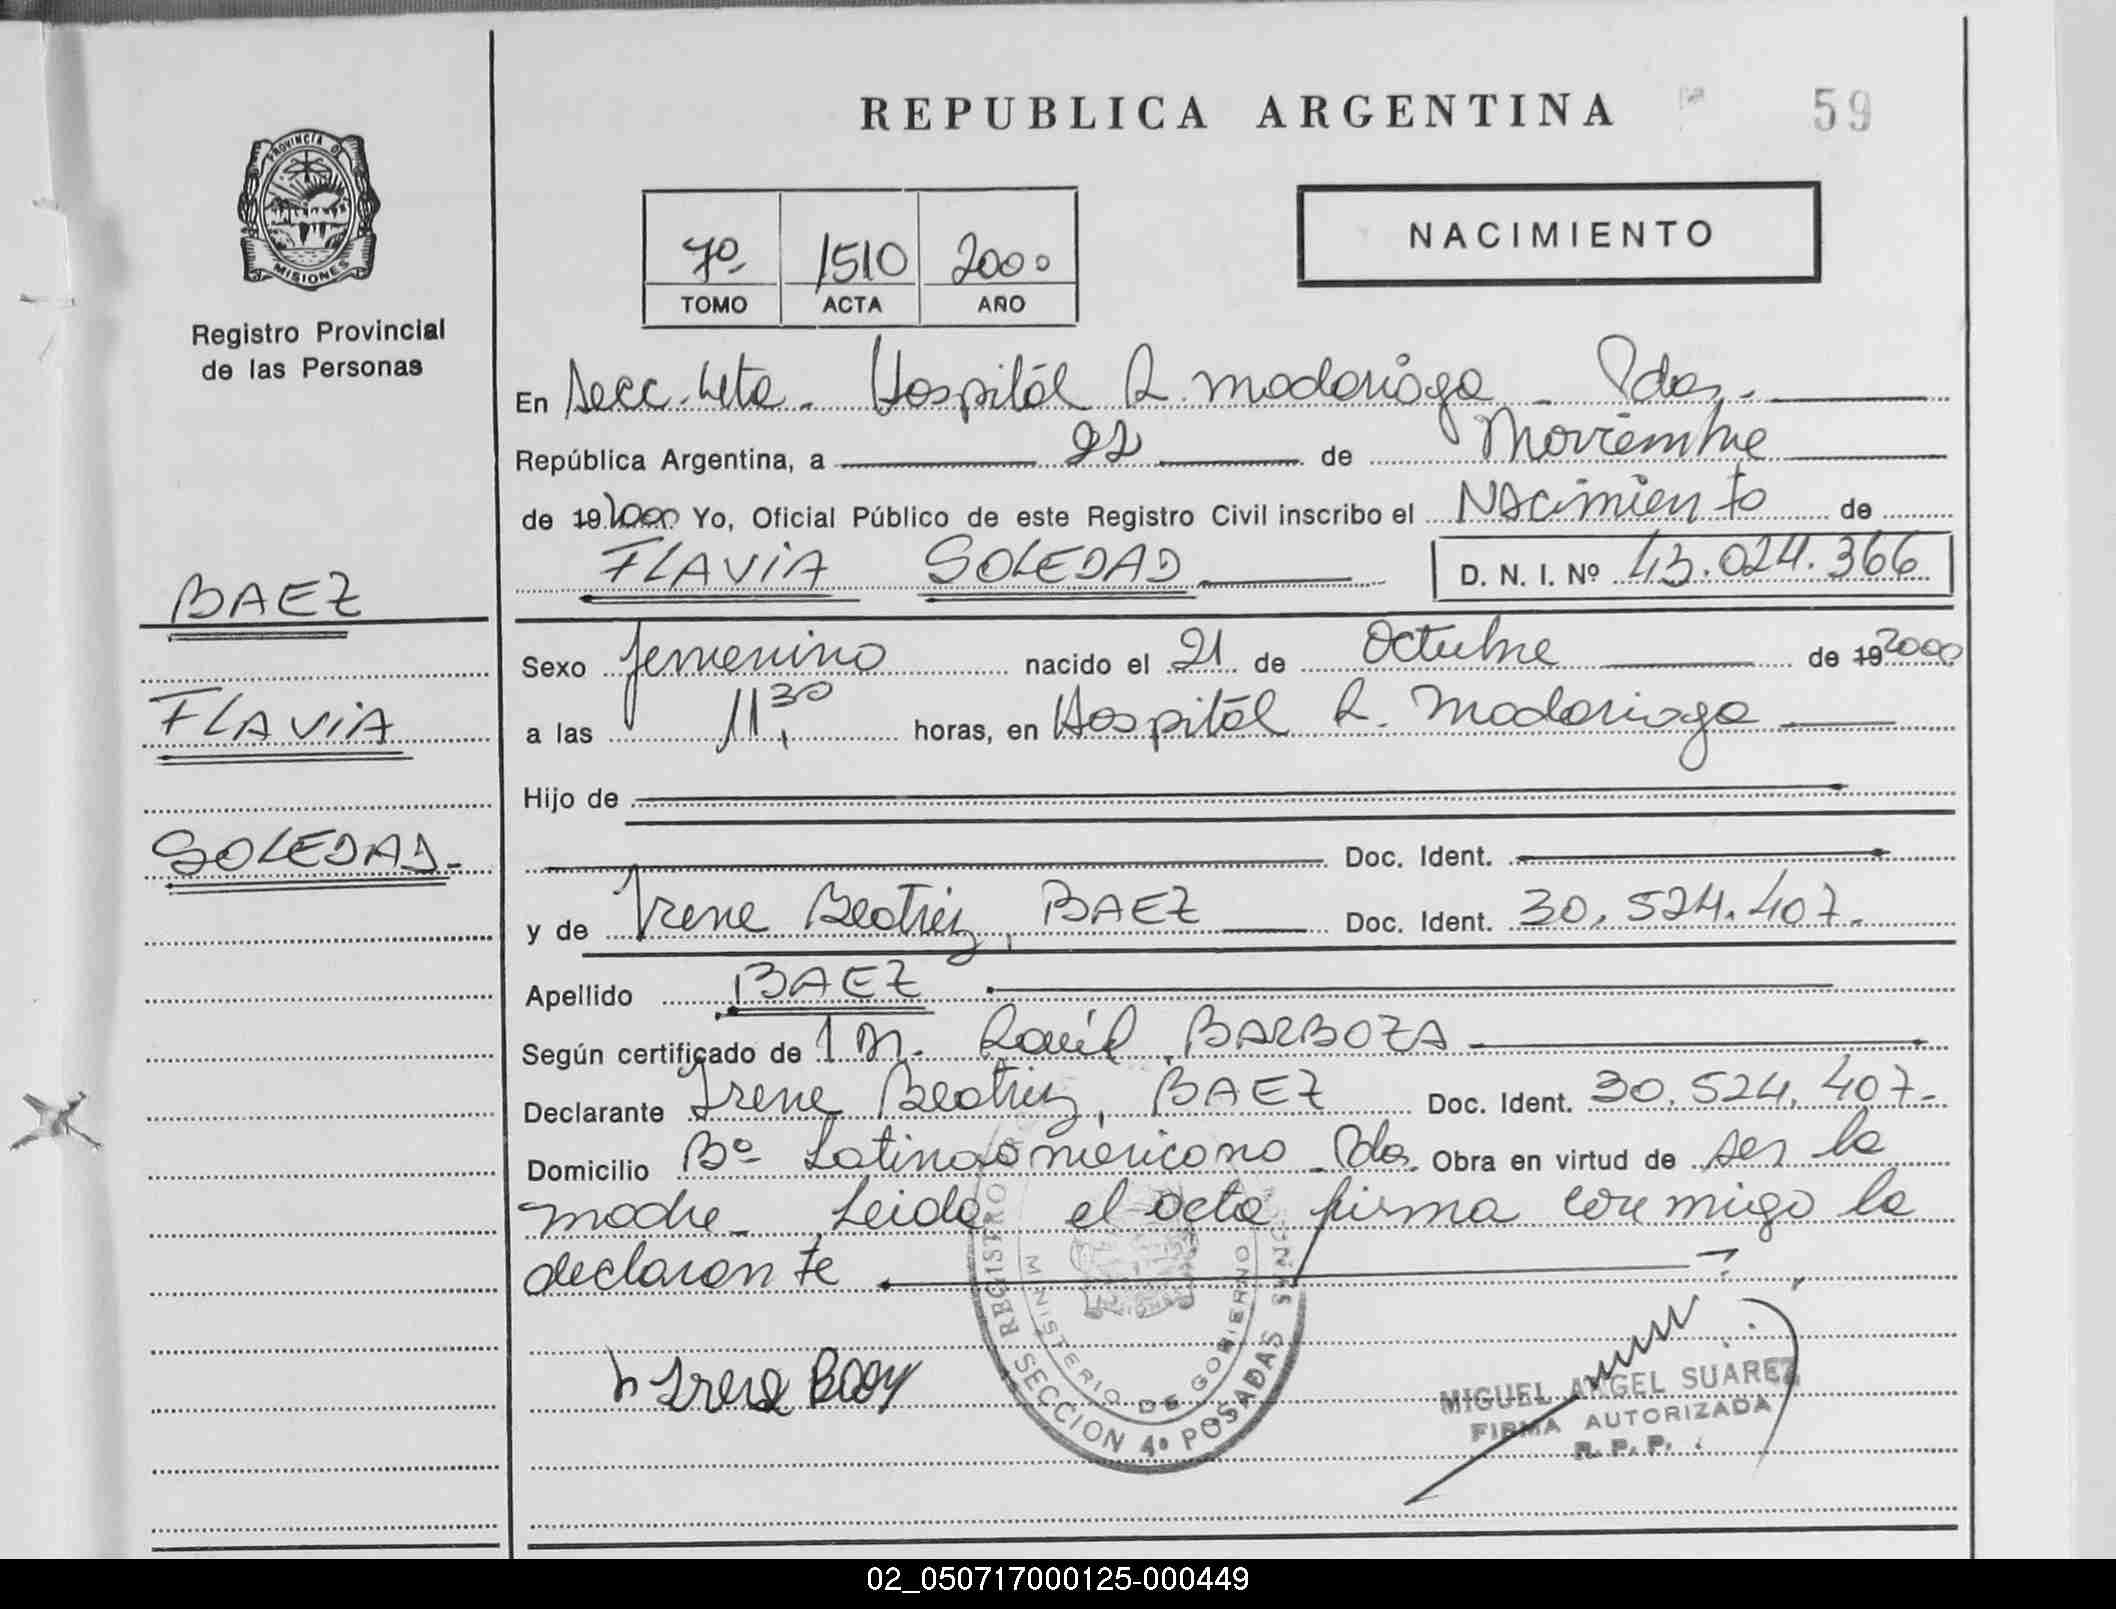 REPUBLICA ARGENTINA
59
PROVINCIA DE
MISIONES
Registro Provincial
de las Personas
7º 1510 2000
TOMO ACTA AÑO
NACIMIENTO
En Secc. 4ta. Hospitál R. Madariaga - Pdas.
República Argentina, a 22 de Noviembre
de 19 2000 Yo, Oficial Público de este Registro Civil inscribo el NAcimiento de
FLAViA SOLEDAD D. N. I. Nº 43.024.366
BAEZ
FLAViA
SOLEDAD.-
Sexo femenino nacido el 21 de Octubre de 19 2000
a las 11,30 horas, en Hospitál R. Madariaga
Hijo de
Doc. Ident.
y de Irene Beatriz, BAEZ Doc. Ident. 30.524.407.-
Apellido BAEZ
Según certificado de Raúl, BARBOZA
Declarante Irene Beatriz, BAEZ Doc. Ident. 30.524.407.-
Domicilio Bº Latinoaméricano - Pdas. Obra en virtud de ser la
madre - Leida el acta firma con migo la
declarante
REGISTRO
MINISTERIO DE GOBIERNO
SECCION 4º POSADAS
MIGUEL ANGEL SUAREZ
FIRMA AUTORIZADA
R. P. P.
02_050717000125-000449